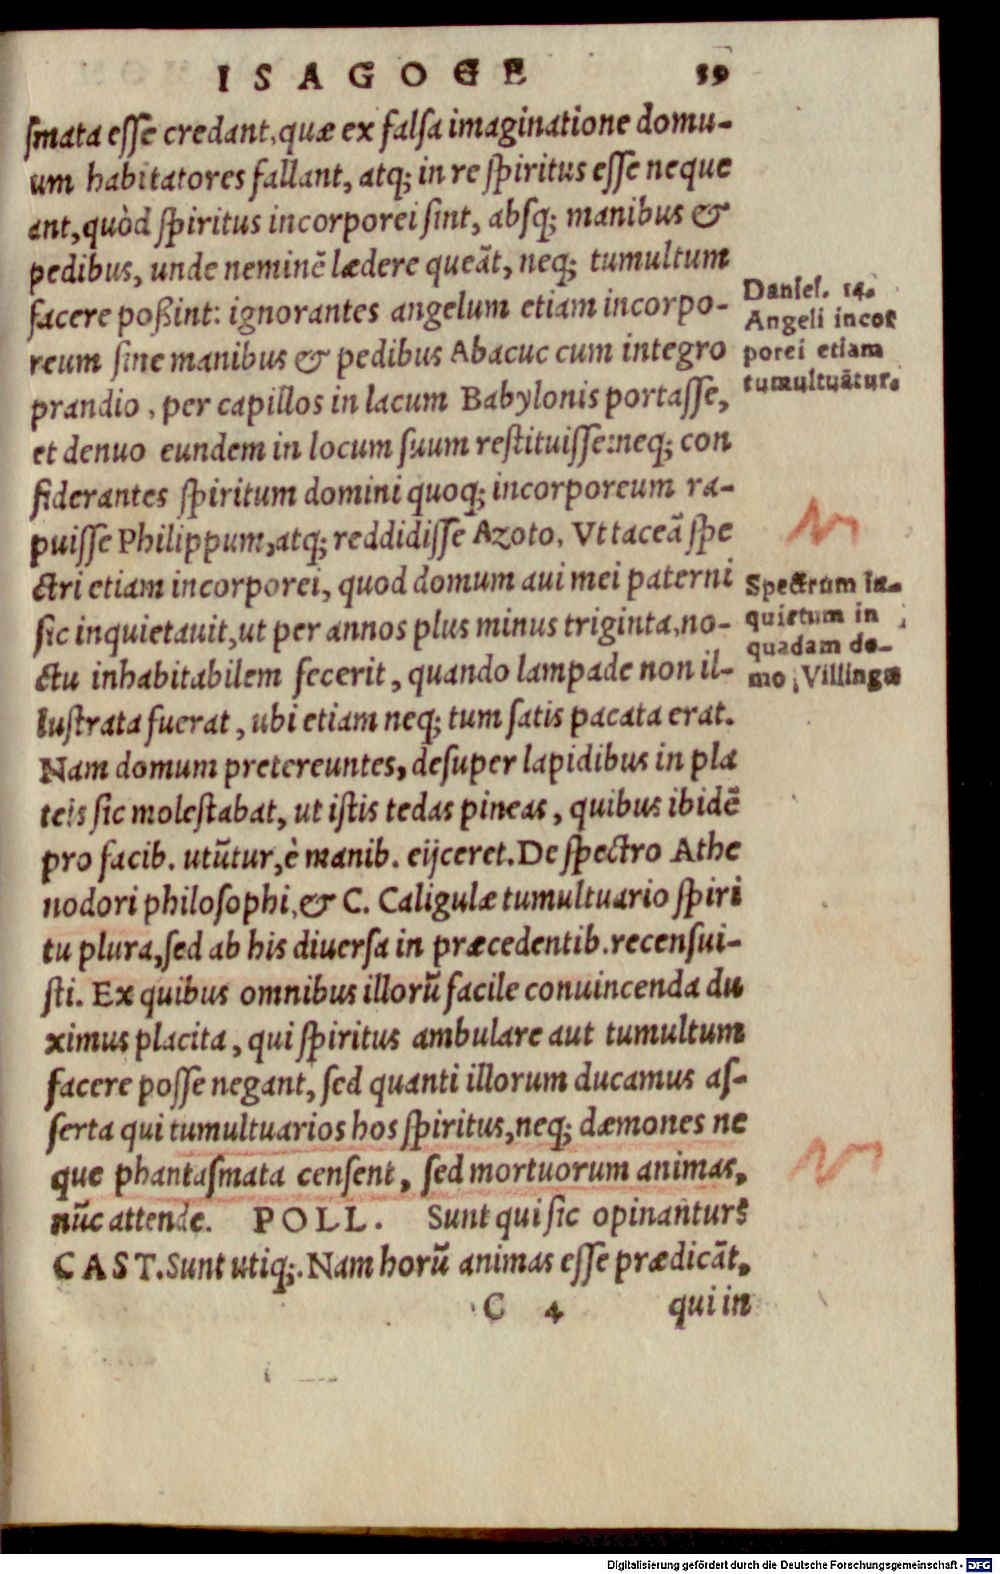 ISAGOGE 39
ſmata eſſe credant, quæ ex falſa imaginatione domu-
um habitatores fallant, atq; in re ſpiritus eſſe neque
ant, quòd ſpiritus incorporei ſint, abſq; manibus &
pedibus, unde neminē lædere queāt, neq; tumultum
facere poßint: ignorantes angelum etiam incorpo-
reum ſine manibus & pedibus Abacuc cum integro
prandio, per capillos in lacum Babylonis portaſſe,
et denuo eundem in locum ſuum reſtituiſſe: neq; con
ſiderantes ſpiritum domini quoq; incorporeum ra-
puiſſe Philippum, atq; reddidiſſe Azoto. Vt taceā ſpe
ctri etiam incorporei, quod domum aui mei paterni
ſic inquietauit, ut per annos plus minus triginta, no-
ctu inhabitabilem fecerit, quando lampade non il-
luſtrata fuerat, ubi etiam neq; tum ſatis pacata erat.
Nam domum pretereuntes, deſuper lapidibus in pla
teis ſic moleſtabat, ut iſtis tedas pineas, quibus ibidē
pro facib. utūtur, è manib. eijceret. De ſpectro Athe
nodori philoſophi, & C. Caligulæ tumultuario ſpiri
tu plura, ſed ab his diuerſa in præcedentib. recenſui-
ſti. Ex quibus omnibus illorū facile conuincenda du
ximus placita, qui ſpiritus ambulare aut tumultum
facere poſſe negant, ſed quanti illorum ducamus aſ-
ſerta qui tumultuarios hos ſpiritus, neq; dæmones ne
que phantaſmata cenſent, ſed mortuorum animas,
nūc attende. POLL. Sunt qui ſic opinantur?
CAST. Sunt utiq;. Nam horū animas eſſe prædicāt,
C 4 qui in
Daniel. 14.
Angeli incor
porei etiam
tumultuātur.
Spectrum in-
quietum in
quadam do-
mo Villingæ
Digitalisierung gefördert durch die Deutsche Forschungsgemeinschaft - DFG